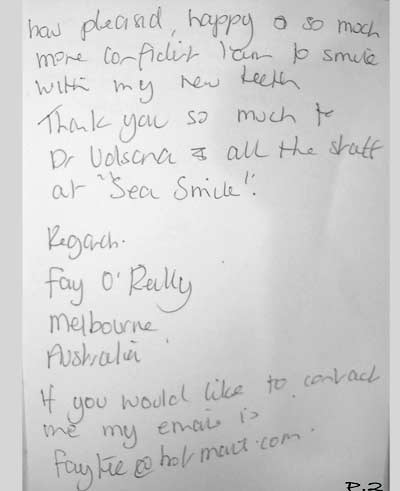 how pleased, happy & so much
more confident I am to smile
with my new teeth
Thank you so much to
Dr & all the staff
at "Sea Smile".
Regards.
Fay O'Reilly
Melbourne
Australia
If you would like to contact
me my email is
@hotmail.com.
P.2